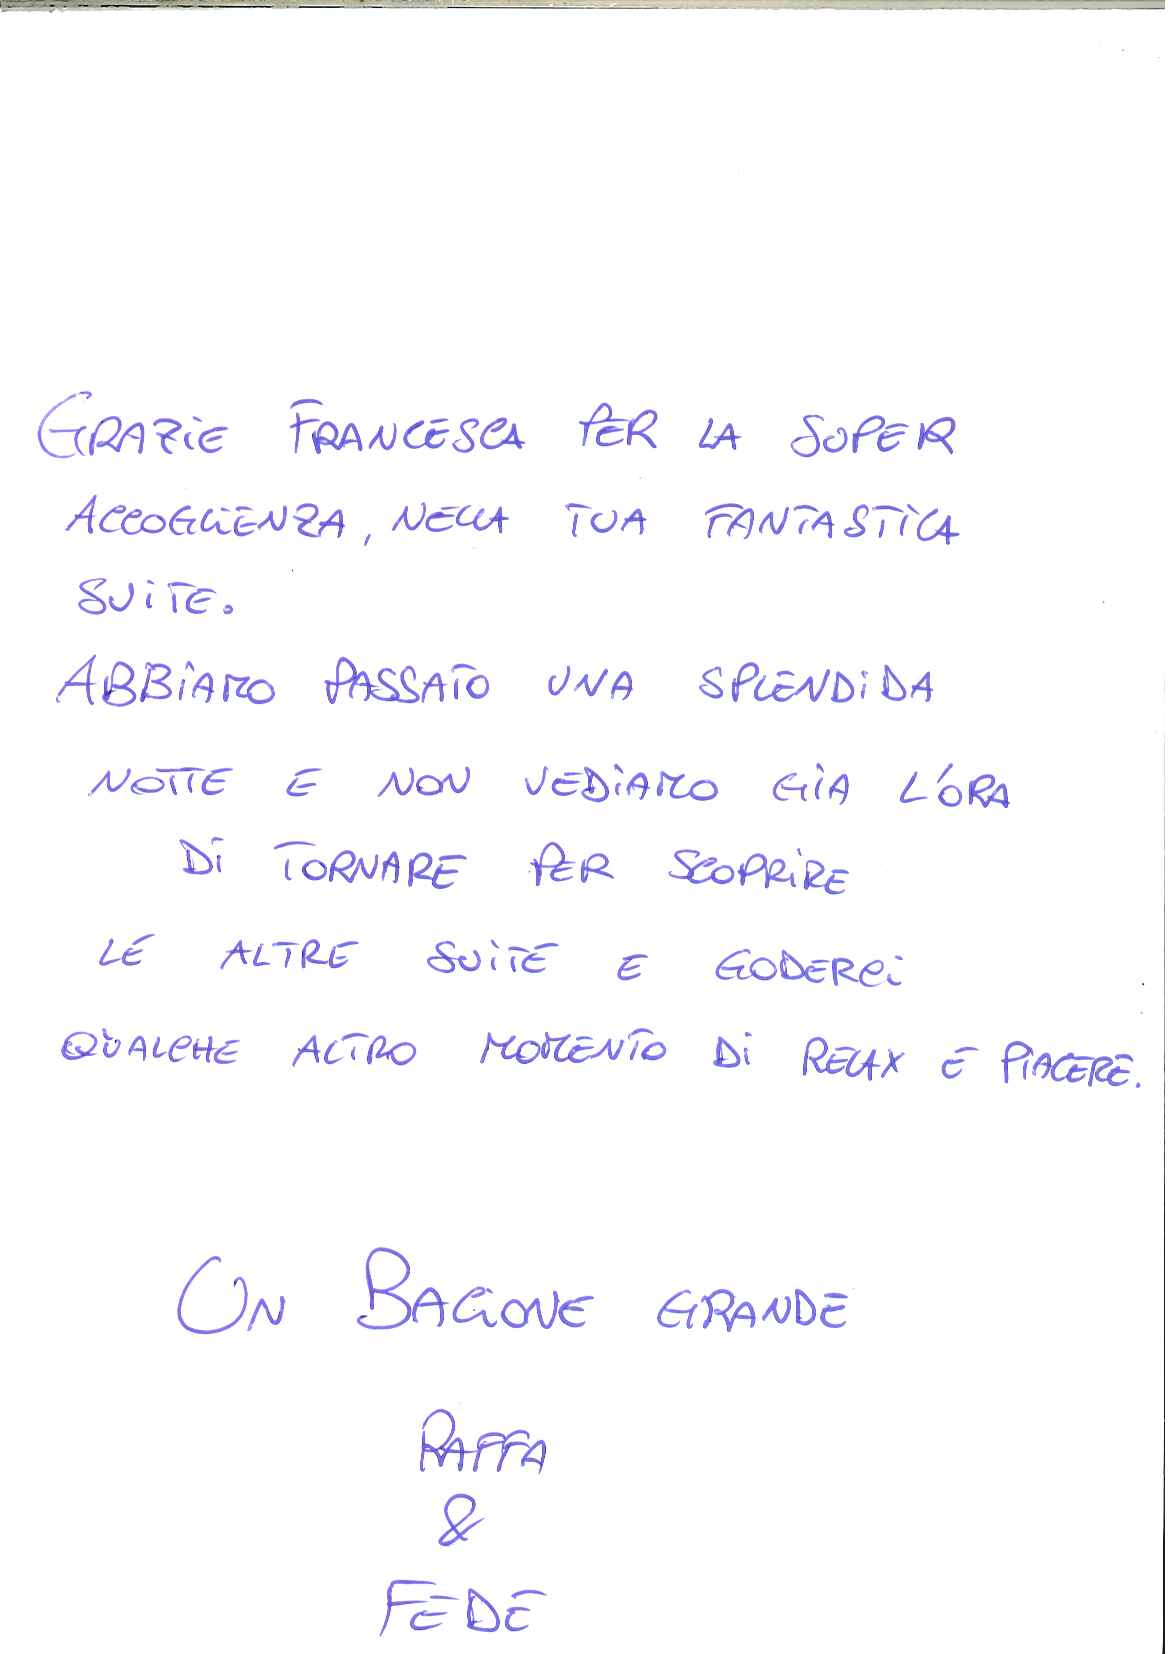 GRAZIE FRANCESCA PER LA SUPER
ACCOGLIENZA, NELLA TUA FANTASTICA
SUITE.
ABBIAMO PASSATO UNA SPLENDIDA
NOTTE E NON VEDIAMO GIÀ L'ORA
DI TORNARE PER SCOPRIRE
LE ALTRE SUITE E GODERCI
QUALCHE ALTRO MOMENTO DI RELAX E PIACERE.
UN BACIONE GRANDE
RAFFA
&
FEDE